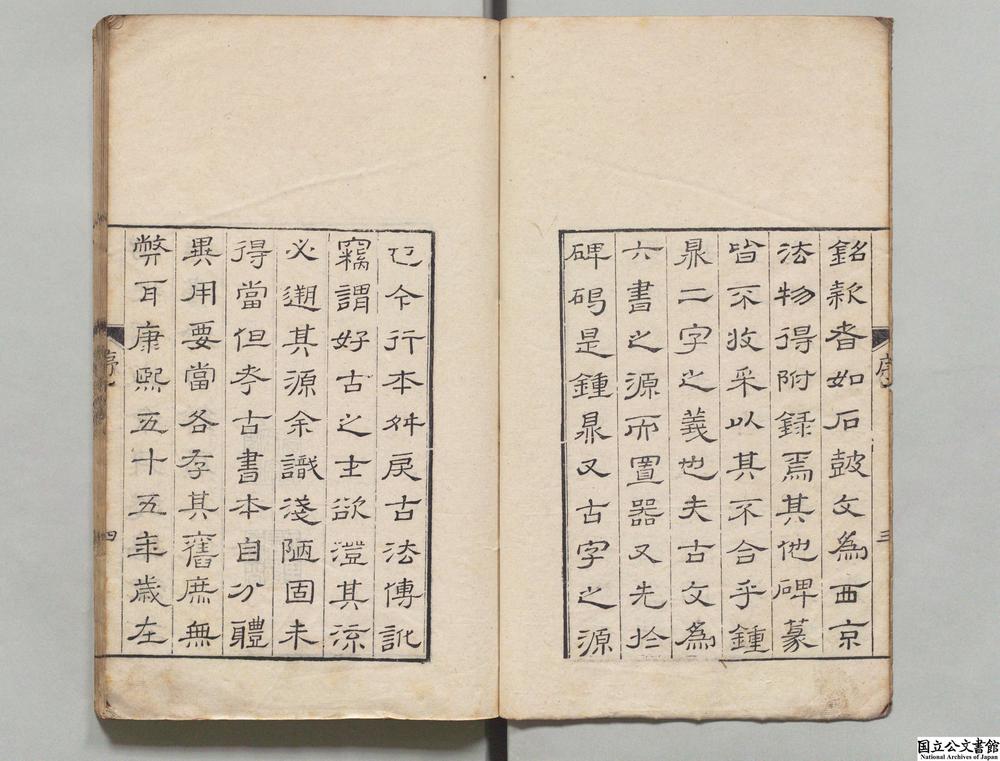 銘款者如石鼓文為西京
法物得附錄焉其他碑篆
皆不收采以其不合乎鍾
鼎二字之義也夫古文為
六書之源而置器又先於
碑碣是鍾鼎又古字之源
序 三
也今行本舛戾古法傳訛
竊謂好古之士欲澄其流
必遡其源余識淺陋固未
得當但考古書本自分體
異用要當各存其舊庶無
弊耳康熙五十五年歲在
序 四
国立公文書館
National Archives of Japan